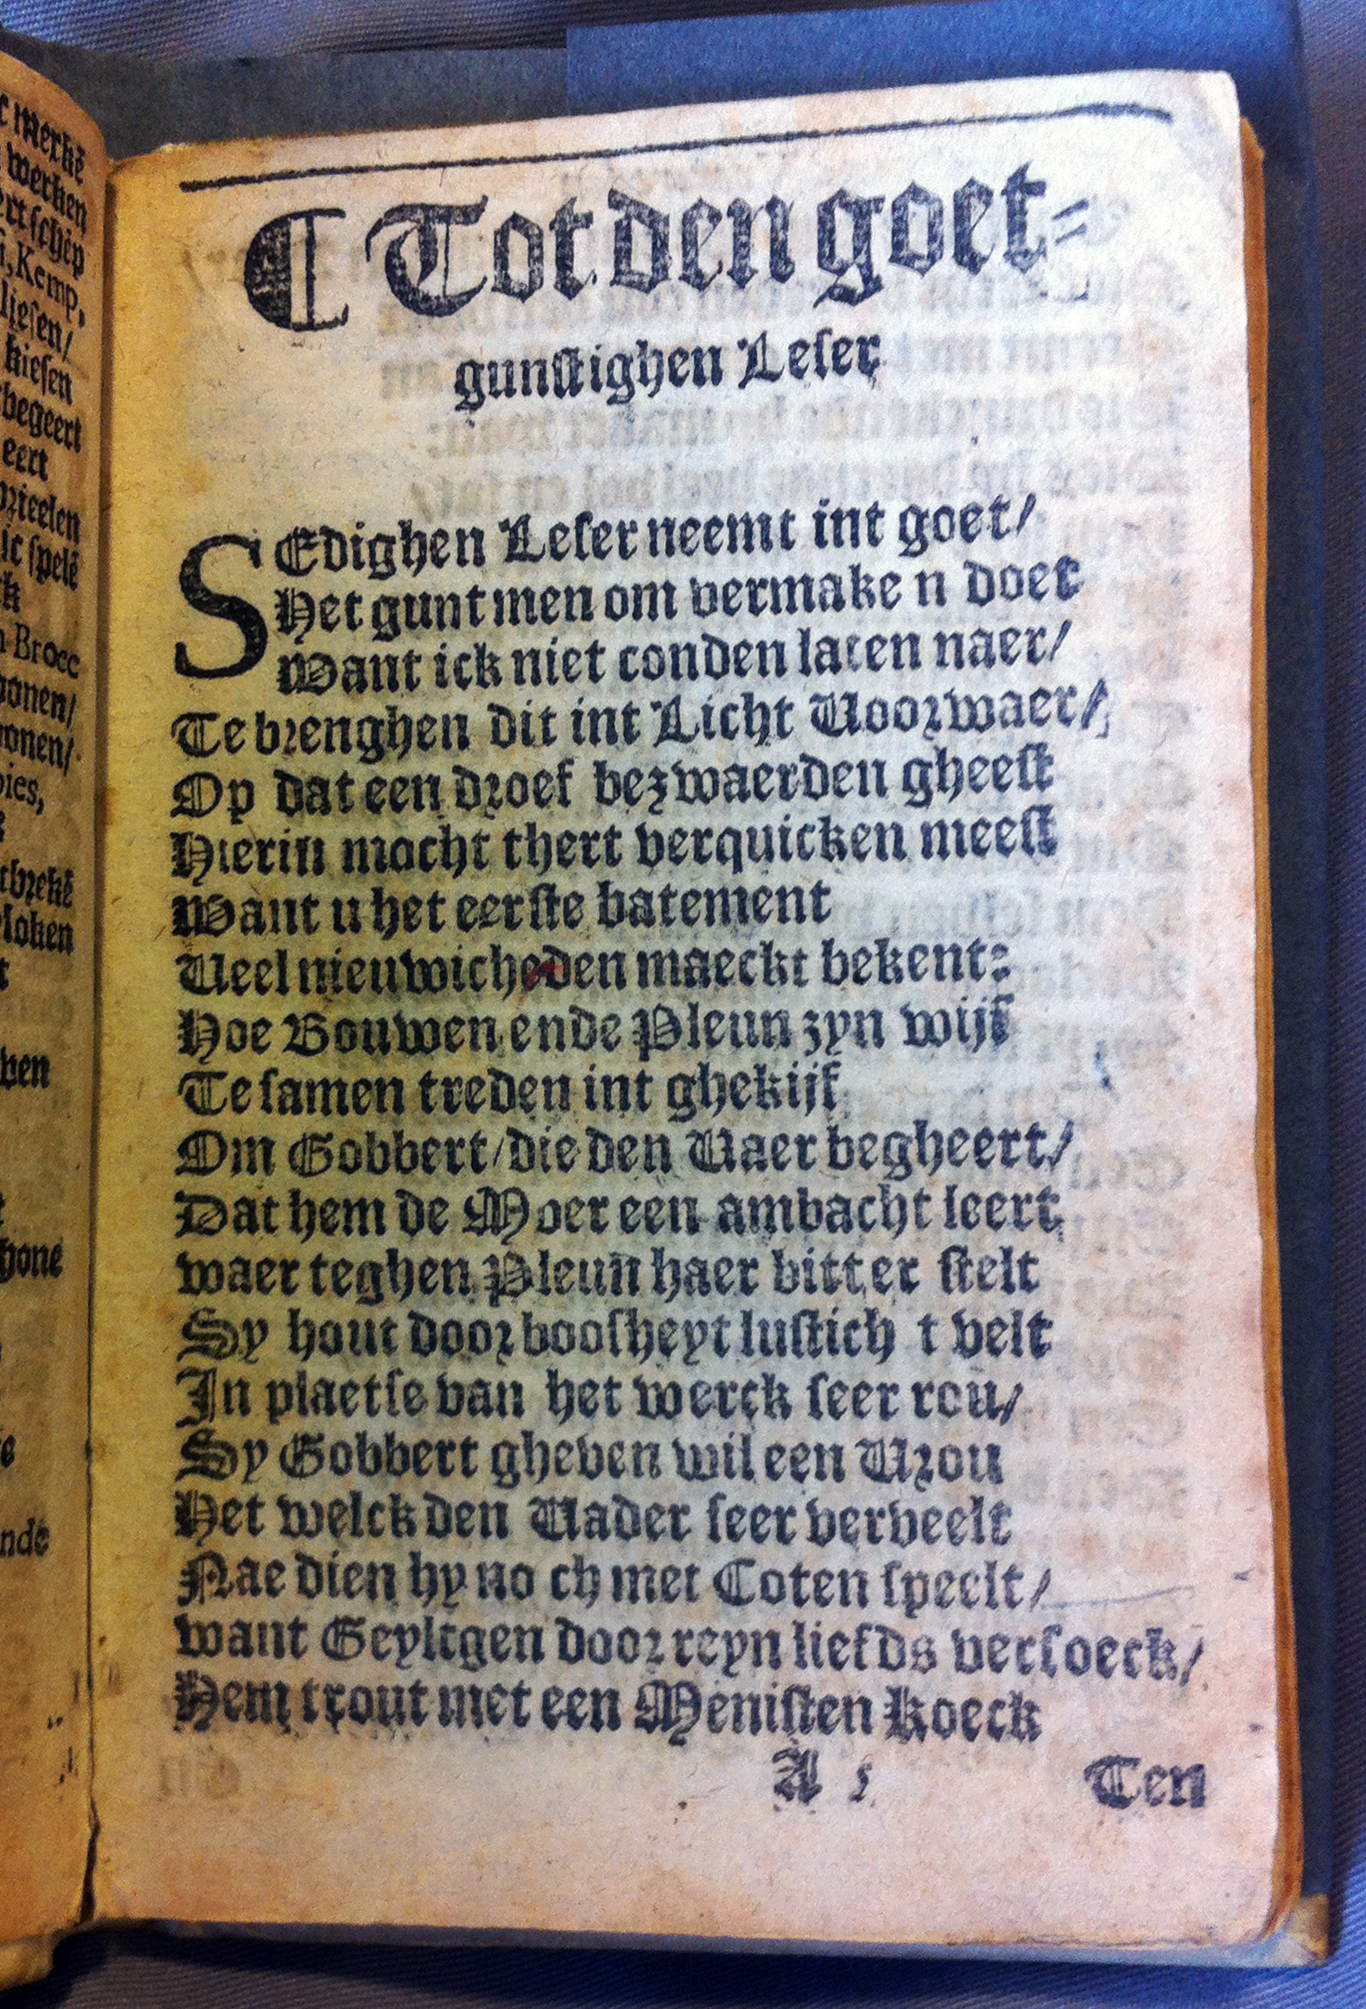 ¶ Tot den goet⸗
gunstighen Leser
SEdighen Leser neemt int goet/
Het gunt men om vermake n doet
Want ick niet conden laten naer/
Te brenghen dit int Licht Voorwaer/
Op dat een droef bezwaerden gheest
Hierin mocht thert verquicken meest
Want u het eerste batement
Veel nieuwicheden maeckt bekent:
Hoe Bouwen ende Pleun zyn wijf
Te samen treden int ghekijf
Om Gobbert/die den Vaer begheert/
Dat hem de Moer een ambacht leert
waer teghen Pleun haer bitter stelt
Sy hout door boosheyt lustich t velt
In plaetse van het werck seer rou/
Sy Gobbert gheven wil een Vrou
Het welck den Vader seer verveelt
Nae dien hy no ch met Coten speelt/
want Geyltgen door reyn liefds versoeck/
Hem trout met een Menisten koeck
A 5
Ten
merkē
werken
Kemp,
liesen/
kiesen
begeert
eert
spelē
Broec
onen/